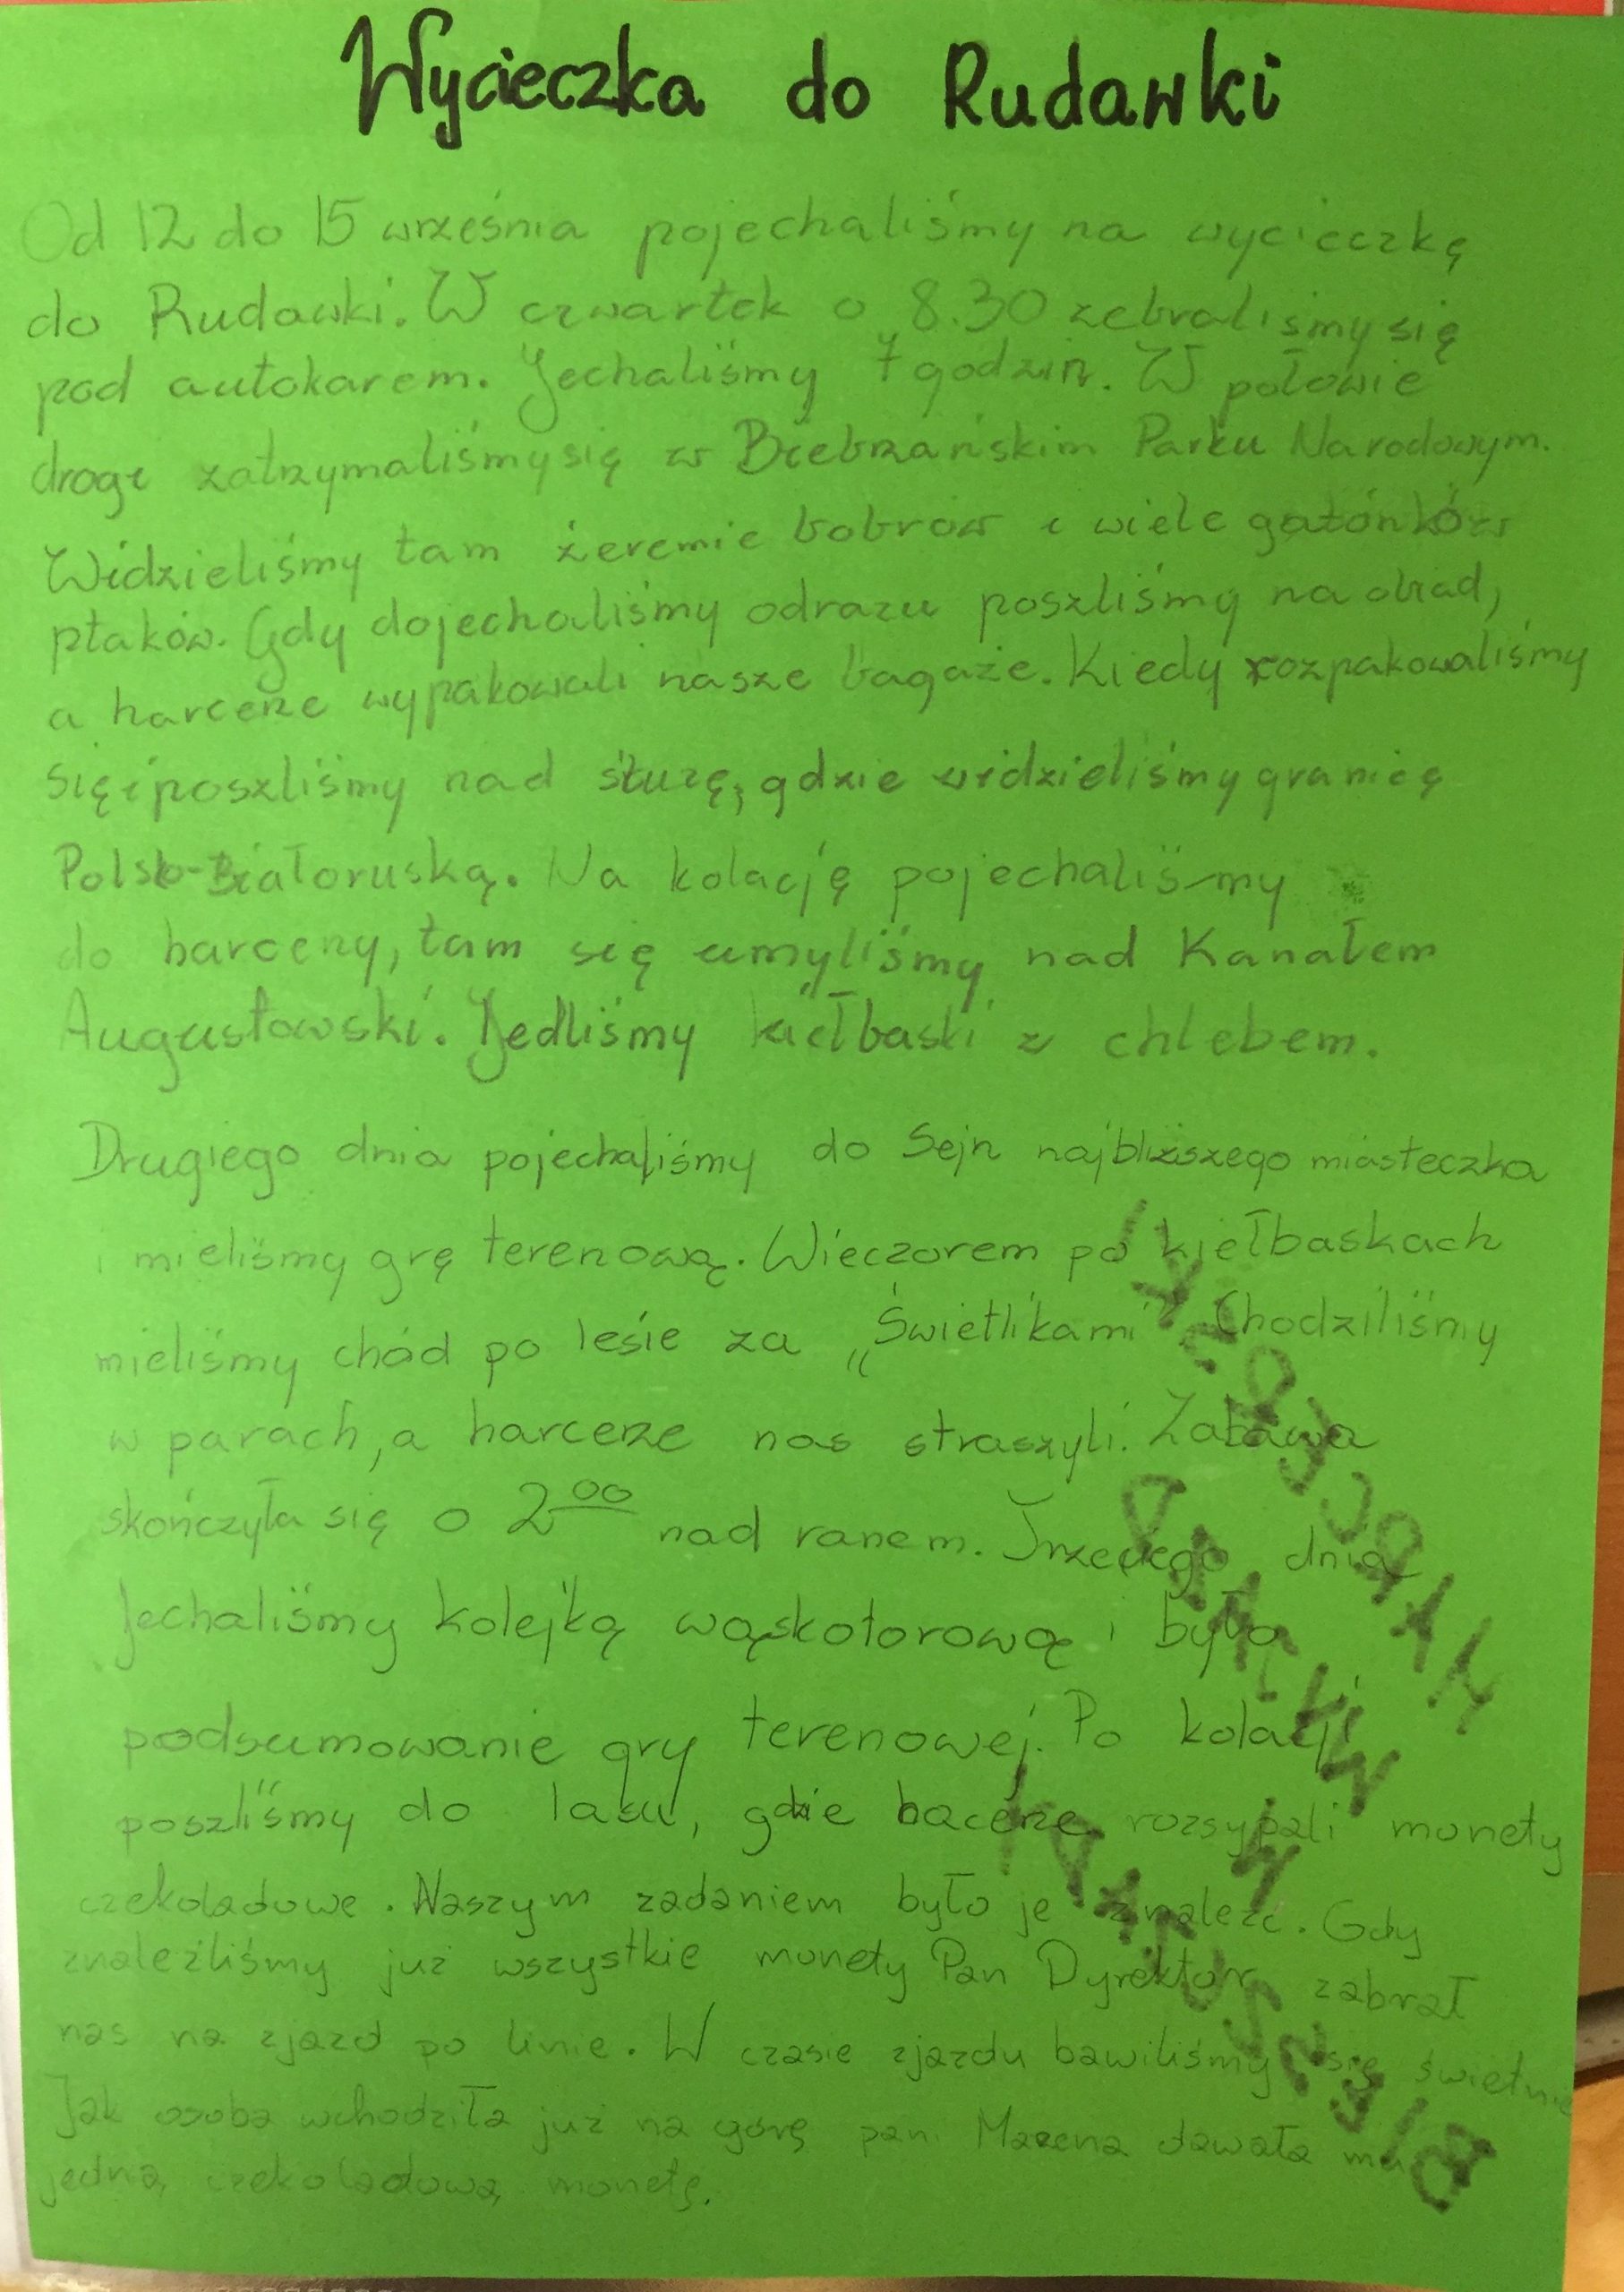 Wycieczka do Rudawki
Od 12 do 15 września pojechaliśmy na wycieczkę
do Rudawki. W czwartek o 8.30 zebraliśmy się
pod autokarem. Jechaliśmy 7 godzin. W połowie
drogi zatrzymaliśmy się w Biebrzańskim Parku Narodowym.
Widzieliśmy tam żeremie bobrów i wiele gatónków
ptaków. Gdy dojechaliśmy odrazu poszliśmy na obiad,
a harcerze wypakowali nasze bagaże. Kiedy rozpakowaliśmy
się i poszliśmy nad śluzę, gdzie widzieliśmy granicę
Polsko-Białoruską. Na kolację pojechaliśmy
do harceży, tam się umyliśmy nad Kanałem
Augustowski. Jedliśmy kiełbaski z chlebem.
Drugiego dnia pojechaliśmy do Sejn najbliższego miasteczka
i mieliśmy grę terenową. Wieczorem po kiełbaskach
mieliśmy chód po lesie za „Świetlikami" Chodziliśmy
w parach, a harcerze nas straszyli. Zabawa
skończyła się o 2⁰⁰ nad ranem. Trzeciego dnia
jechaliśmy kolejką wąskotorową i było
podsumowanie gry terenowej. Po kolacji
poszliśmy do lasu, gdzie rozsypali monety
czekoladowe. Naszym zadaniem było je znaleźć. Gdy
znaleźliśmy już wszystkie monety Pan Dyrektor zabrał
nas na zjazd po linie. W czasie zjazdu bawiliśmy się świetnie
Jak osoba wchodziła już na górę pani dawała mu
jedną czekoladową monetę.